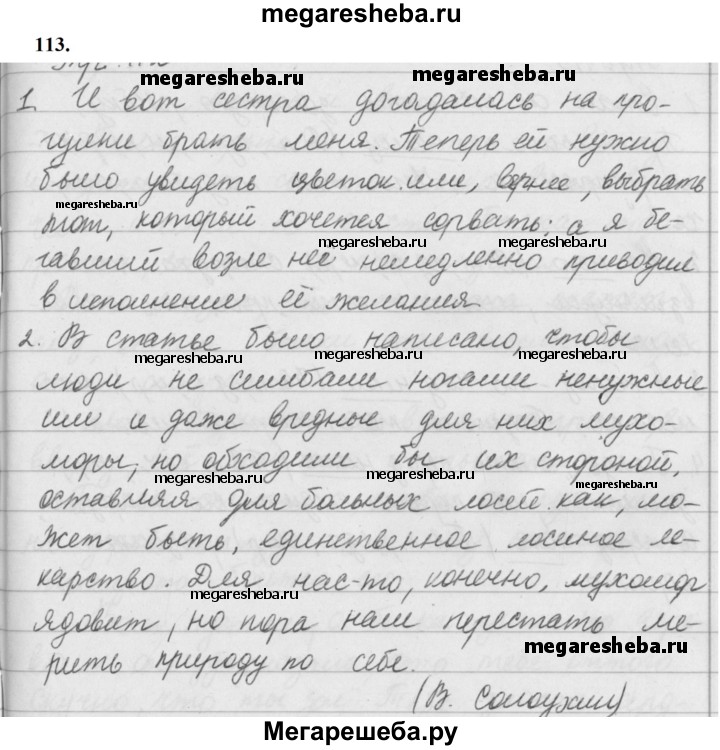 megaresheba.ru
113.
megaresheba.ru
1. И вот сестра догадалась на про-
гулки брать меня. Теперь ей нужно
было увидеть цветок или, вернее, выбрать
megaresheba.ru
тот, который хочется сорвать; а я бе-
megaresheba.ru megaresheba.ru
гавший возле нее немедленно приводил
в исполнение её желания.
2. В статье было написано, чтобы
megaresheba.ru megaresheba.ru megaresheba.ru
люди не сшибали ногами ненужные
им и даже вредные для них мухо-
моры, но обходили бы их стороной,
megaresheba.ru
оставляя для больных лосей как, мо-
жет быть, единственное лосиное ле-
карство. Для нас-то, конечно, мухомор
megaresheba.ru
ядовит, но пора нам перестать ме-
megaresheba.ru
рить природу по себе.
(В. Солоухин)
Мегарешеба.ру